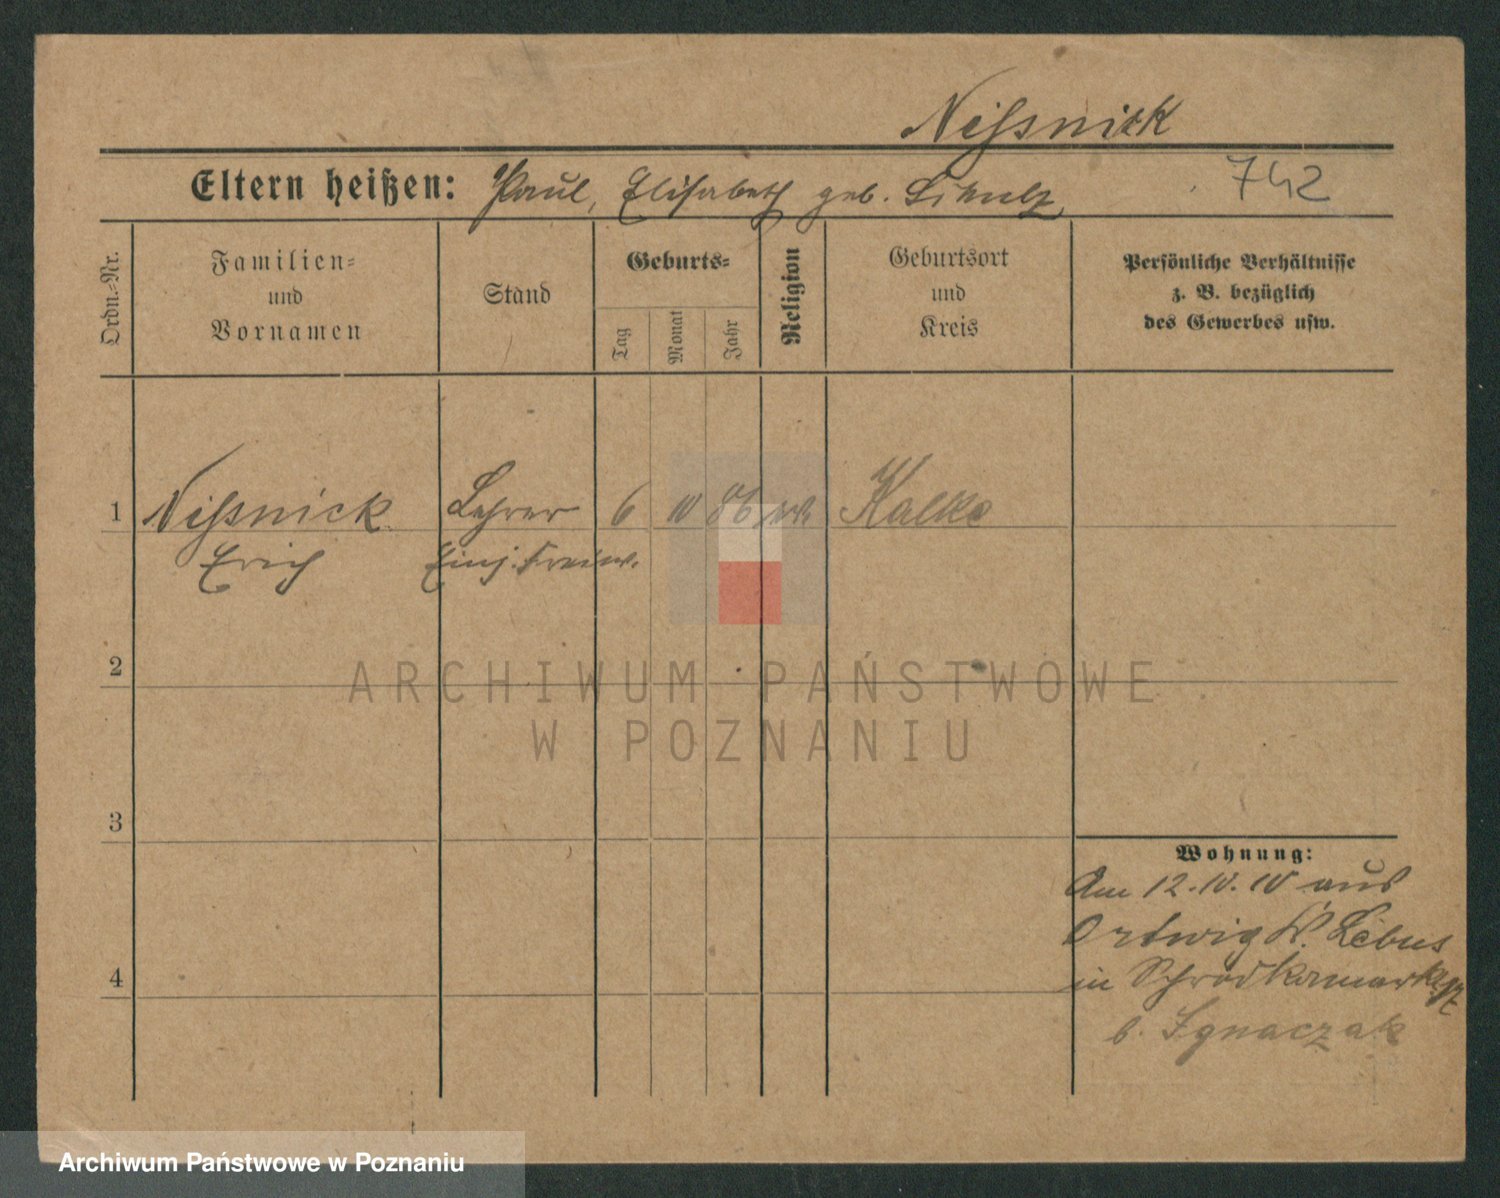 Nißnick
Eltern heißen: Paul, Elisabeth geb. Schulz 742
Ordn.=Nr.
Familien=
und
Vornamen
Stand
Geburts=
Tag
Monat
Jahr
Religion
Geburtsort
und
Kreis
Persönliche Verhältnisse
z. B. bezüglich
des Gewerbes usw.
1 Nißnick Lehrer 6 10 86 ev. Kalke
Erich Einj. Freiw.
2
3
4
Wohnung:
Am 12.10.10 aus
Ortwig K. Lebus
in Schrodkamarkt
b. Ignaczak
ARCHIWUM PAŃSTWOWE
W POZNANIU
Archiwum Państwowe w Poznaniu